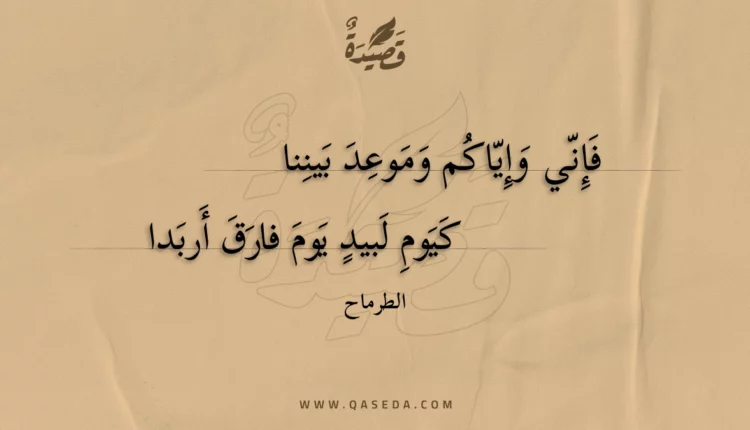 قَصِيدَةٌ
فَإِنّي وَإِيّاكُم وَمَوعِدَ بَينِنا
كَيَومِ لَبيدٍ يَومَ فارَقَ أَربَدا
الطرماح
WWW.QASEDA.COM